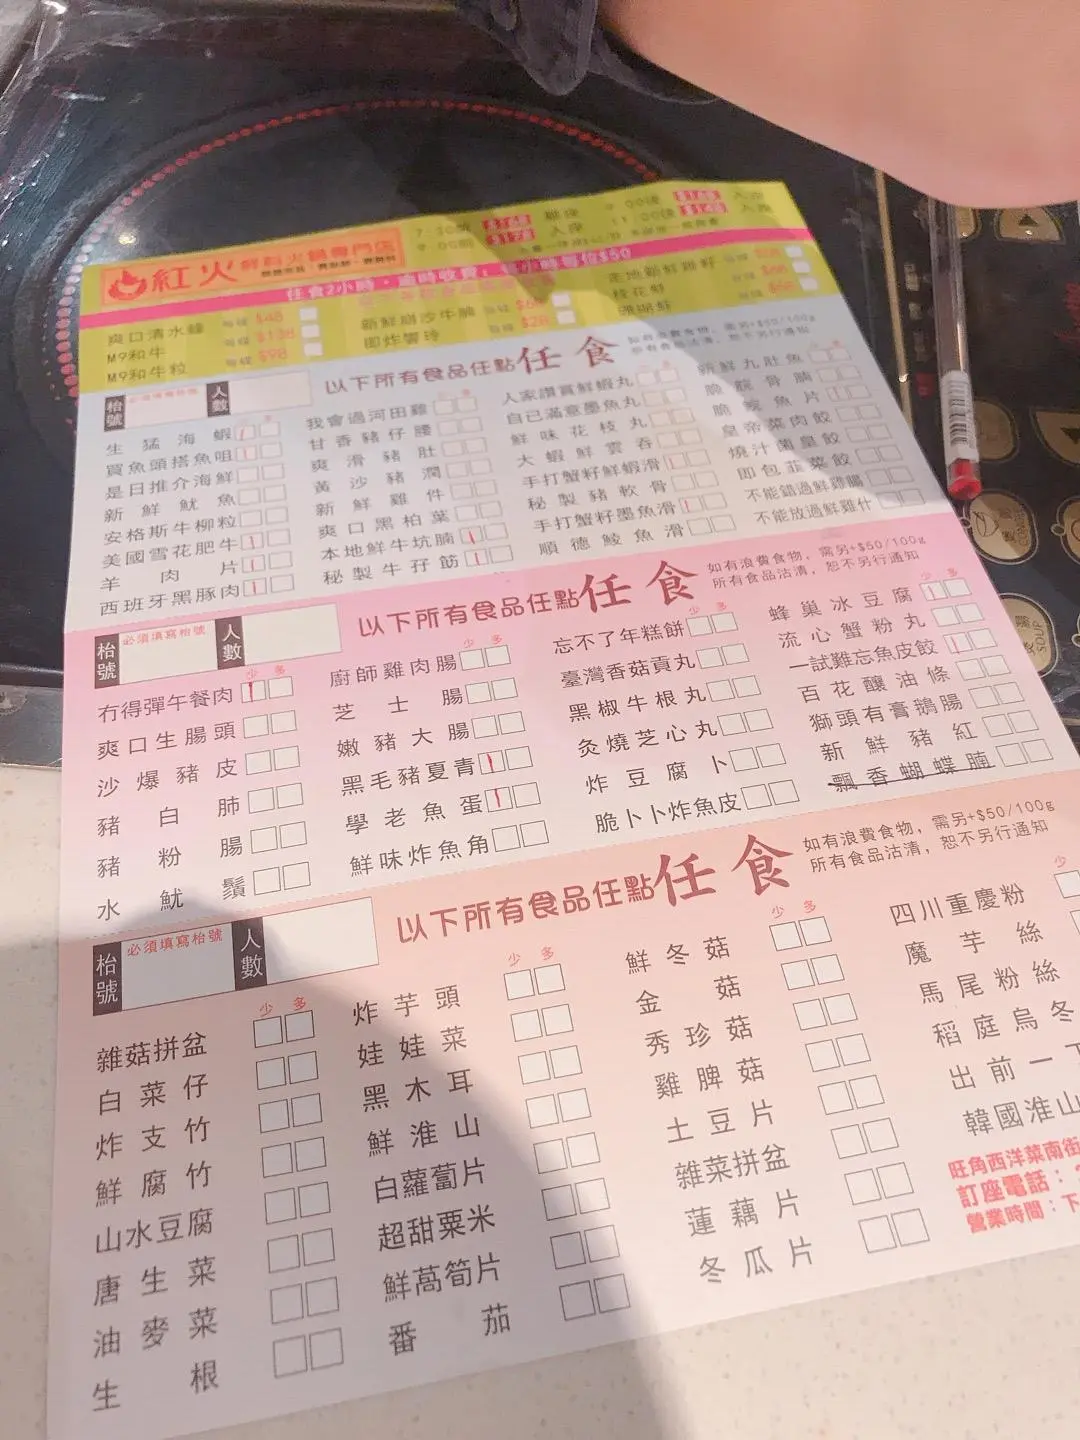 紅火 鮮料火鍋專門店
$168
$178 入座
$148 入座
任食2小時
爽口清水蜂 每碟 $48
M9和牛 每碟 $138
M9和牛粒 每碟 $98
新鮮崩沙牛腩 每碟
即炸響玲 每碟 $28
桂花蚌
以下所有食品任點任食
如有浪費食物，需另+$50/100g
所有食品沽清，恕不另行通知
枱號 必須填寫枱號 人數
少 多
生猛海蝦
買魚頭搭魚咀
是日推介海鮮
新鮮魷魚
安格斯牛柳粒
美國雪花肥牛
羊肉片
西班牙黑豚肉
我會過河田雞
甘香豬仔腰
爽滑豬肚
黃沙豬潤
新鮮雞件
爽口黑柏葉
本地鮮牛坑腩
秘製牛孖筋
人家讚賞鮮蝦丸
自己滿意墨魚丸
鮮味花枝丸
大蝦鮮雲吞
手打蟹籽鮮蝦滑
秘製豬軟骨
手打蟹籽墨魚滑
順德鯪魚滑
新鮮九肚魚
脆豬骨腩
脆魚片
皇帝菜肉餃
燒汁菌皇餃
即包韮菜餃
不能錯過鮮雞腸
不能放過鮮雞什
以下所有食品任點任食
如有浪費食物，需另+$50/100g
所有食品沽清，恕不另行通知
枱號 必須填寫枱號 人數
少 多
冇得彈午餐肉
爽口生腸頭
沙爆豬皮
豬白肺
豬粉腸
水魷鬚
少 多
廚師雞肉腸
芝士腸
嫩豬大腸
黑毛豬夏青
學老魚蛋
鮮味炸魚角
少 多
忘不了年糕餅
臺灣香菇貢丸
黑椒牛根丸
灸燒芝心丸
炸豆腐卜
脆卜卜炸魚皮
少 多
蜂巢冰豆腐
流心蟹粉丸
一試難忘魚皮餃
百花釀油條
獅頭有膏鵝腸
新鮮豬紅
飄香蝴蝶腩
以下所有食品任點任食
如有浪費食物，需另+$50/100g
所有食品沽清，恕不另行通知
枱號 必須填寫枱號 人數
少 多
雜菇拼盆
白菜仔
炸支竹
鮮腐竹
山水豆腐
唐生菜
油麥菜
生根
少 多
炸芋頭
娃娃菜
黑木耳
鮮淮山
白蘿蔔片
超甜粟米
鮮萵筍片
番茄
少 多
鮮冬菇
金菇
秀珍菇
雞脾菇
土豆片
雜菜拼盆
蓮藕片
冬瓜片
少
四川重慶粉
魔芋絲
馬尾粉絲
稻庭烏冬
出前一丁
韓國淮山
旺角西洋菜南街
訂座電話：
營業時間：下